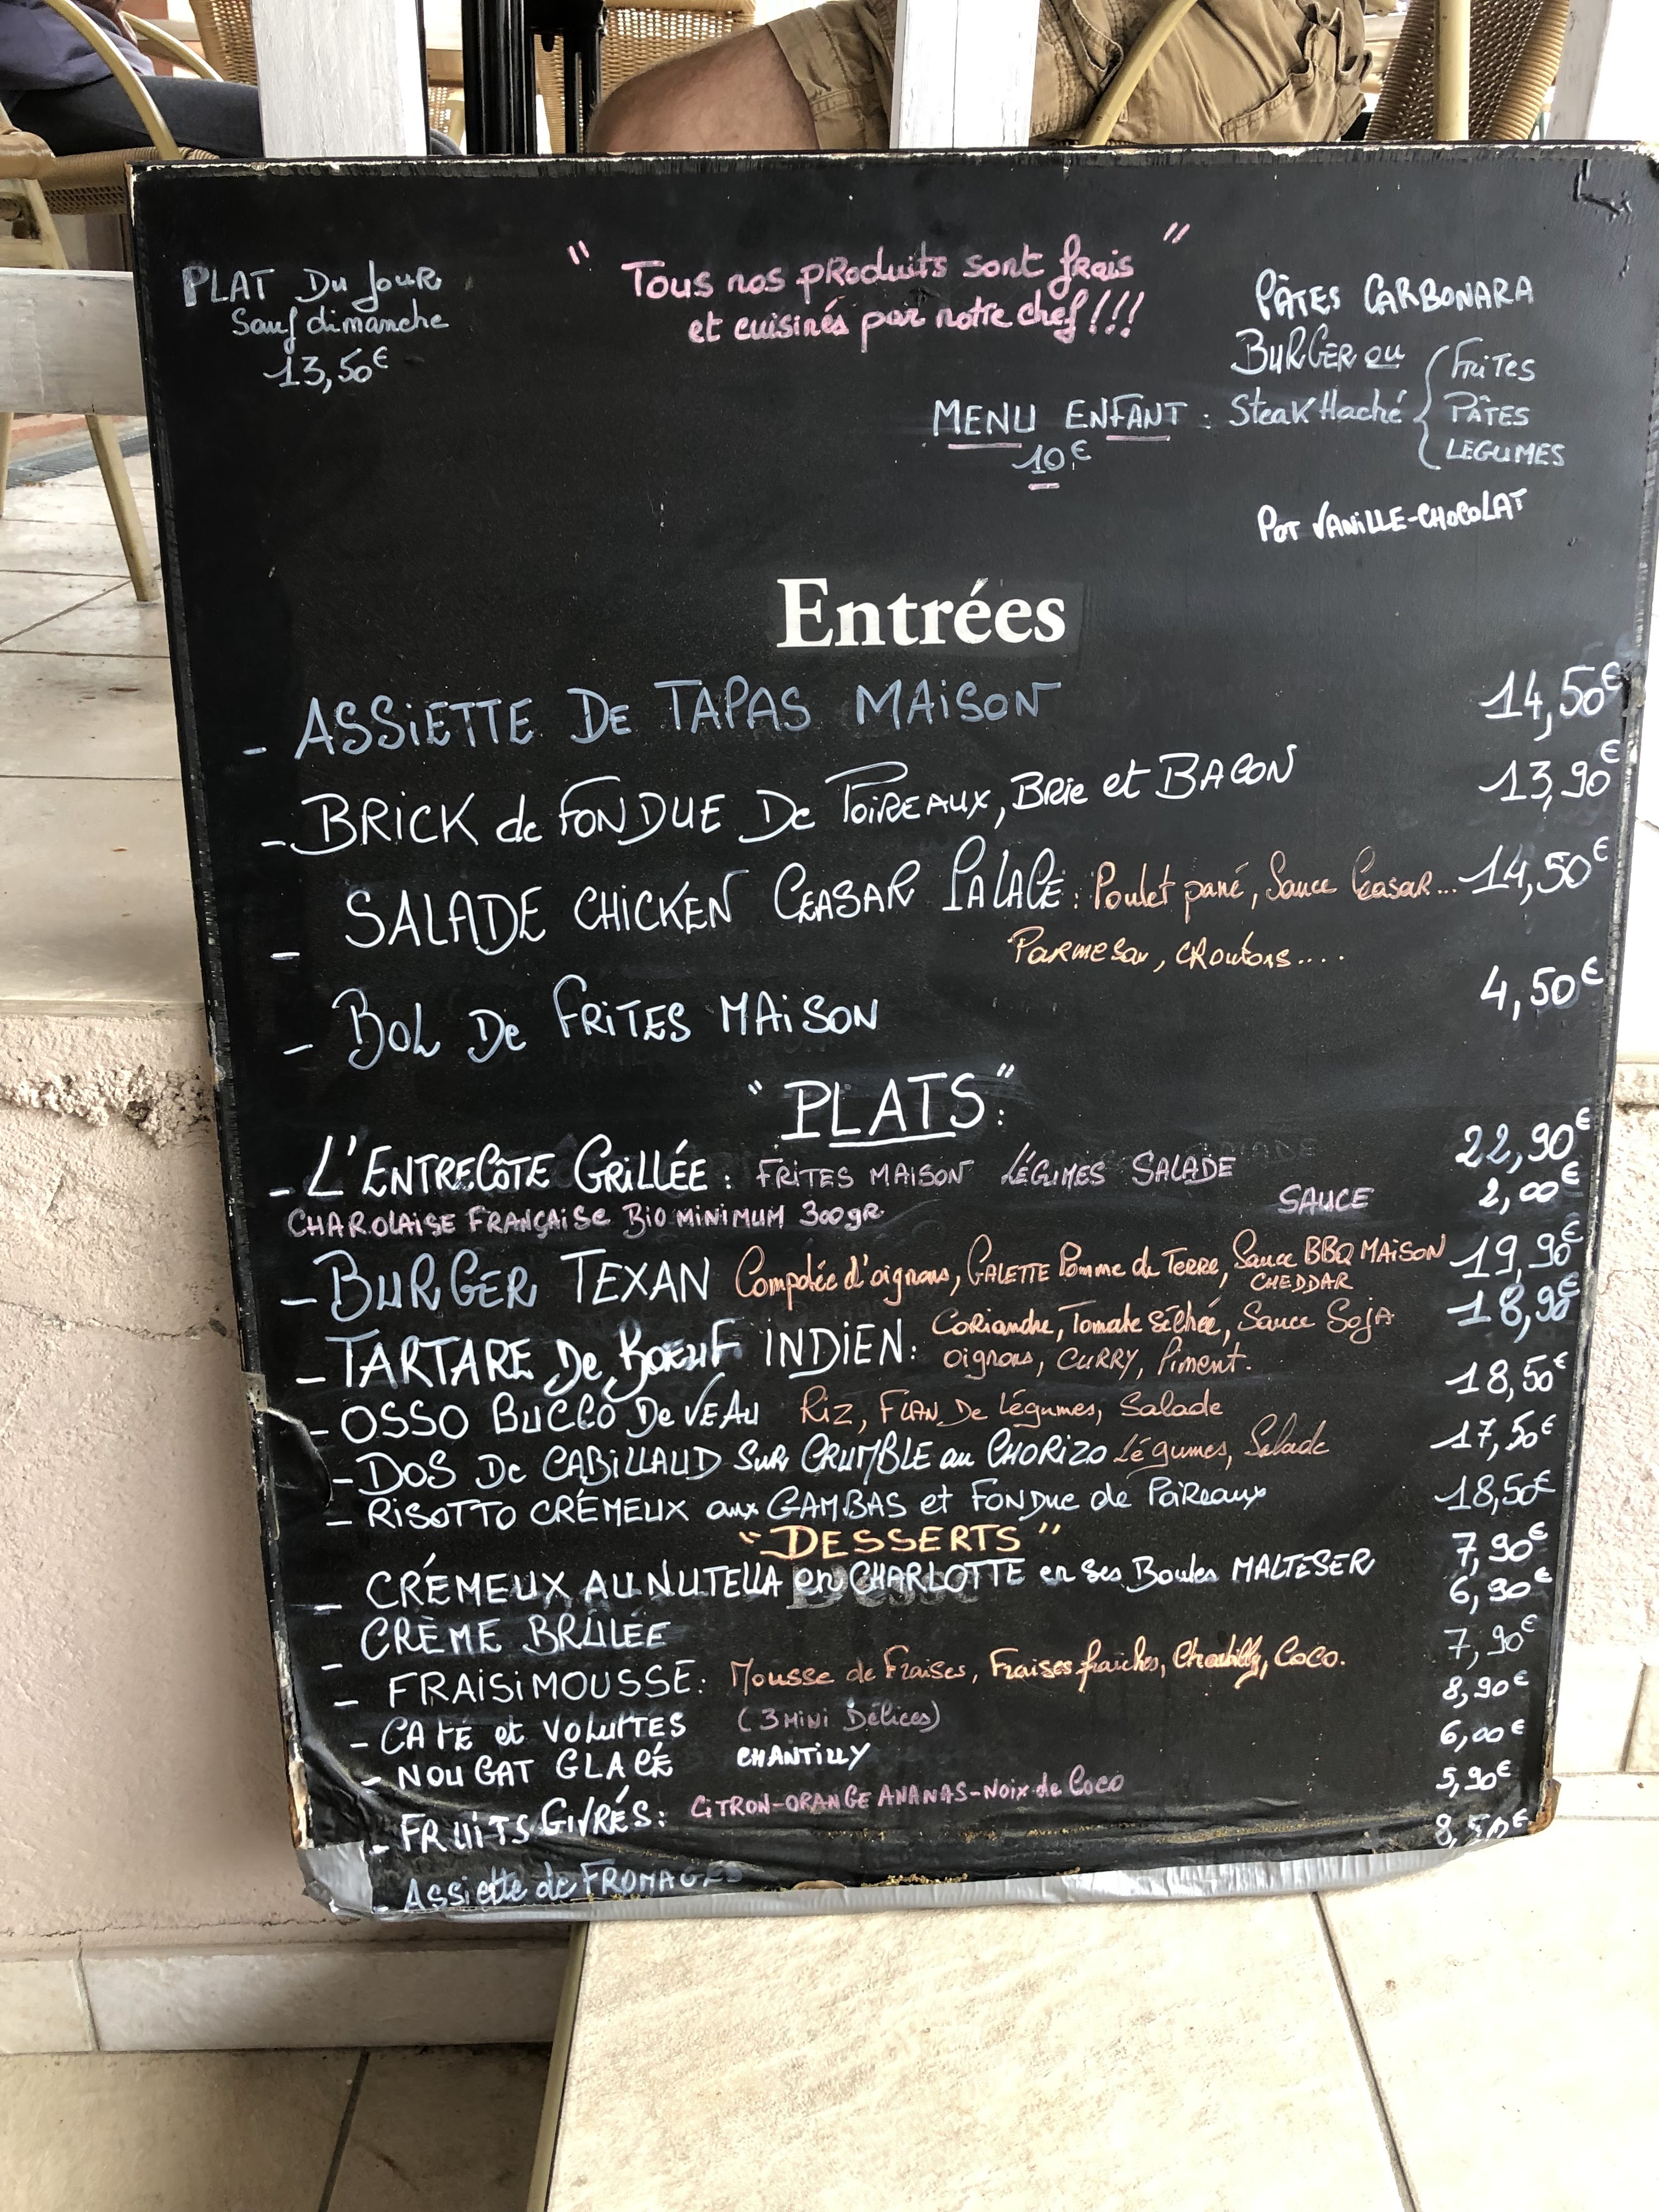 PLAT Du Jour
Sauf dimanche
13,50€
" Tous nos pRoduits sont frais "
et cuisinés par notre chef !!!
MENU ENFANT :
10€
PÂTES CARBONARA
BURGER ou
Steak Haché
FRITES
PÂTES
LEGUMES
POT VANILLE-CHOCOLAT
Entrées
- ASSIETTE DE TAPAS MAISON 14,50€
- BRICK de FONDUE De POIREAUX, BRie et BACON 13,90€
- SALADE CHICKEN CEASAR PALACE : Poulet pané, Sauce Ceasar... 14,50€
Parmesan, cRoutons....
- BOL De FRITES MAISON 4,50€
"PLATS":
- L'ENTRECÔTE GRILLÉE : FRITES MAISON LÉGUMES SALADE 22,90€
CHAROLAISE FRANÇAISE BIO MINIMUM 300gR. SAUCE 2,00€
- BURGER TEXAN Compotée d'oignons, GALETTE Pomme de TERRE, Sauce BBQ MAISON 19,90€
CHEDDAR
- TARTARE De BOEUF INDIEN : Coriandre, Tomate Séchée, Sauce SOJA 18,90€
oignons, CURRY, Piment.
- OSSO BUCCO De VEAU Riz, FLAN De Légumes, Salade 18,50€
- DOS De CABILLAUD SUR CRUMBLE au CHORIZO Légumes, Salade 17,50€
- RISOTTO CRÉMEUX aux GAMBAS et FONDue de PoiReaux 18,50€
"DESSERTS"
- CRÉMEUX AU NUTELLA en CHARLOTTE en ses Boules MALTESER 7,90€
- CRÈME BRÛLÉE 6,90€
- FRAISIMOUSSE : Mousse de Fraises, Fraises fraiches, Chantilly, Coco. 7,90€
- CAFÉ et VOLUPTES (3 MINI Délices) 8,90€
- NOUGAT GLACÉ CHANTILLY 6,00€
- FRUITS GIVRÉS : CITRON-ORANGE ANANAS-NOIX de Coco 5,90€
- Assiette de FROMAGES 8,50€